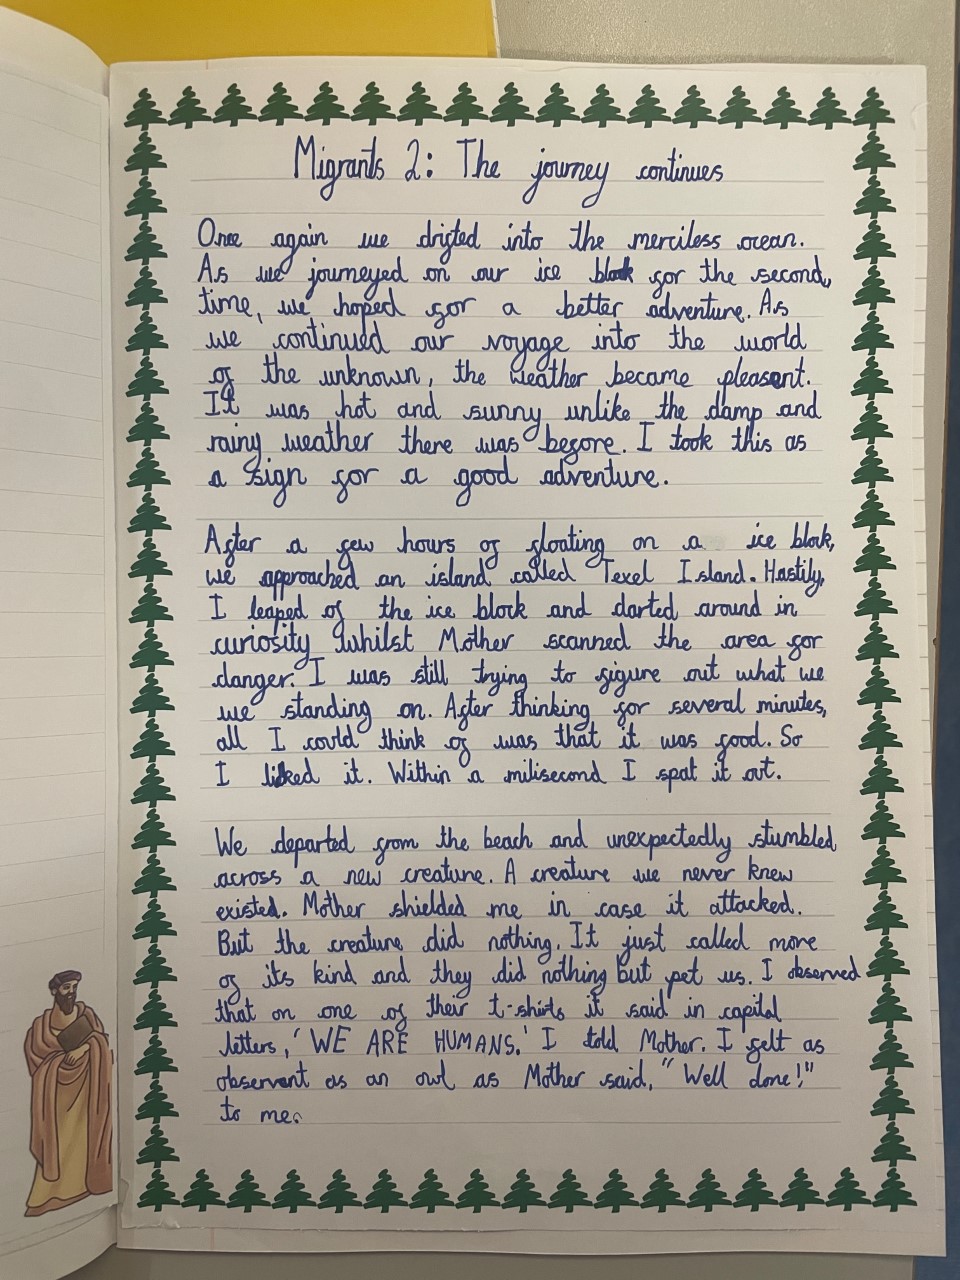 Migrants 2: The journey continues
Once again we drifted into the merciless ocean.
As we journeyed on our ice block for the second,
time, we hoped for a better adventure. As
we continued our voyage into the world
of the unknown, the weather became pleasent.
It was hot and sunny unlike the damp and
rainy weather there was before. I took this as
a sign for a good adventure.
After a few hours of floating on a ice block,
we approached an island called Texel Island. Hastily,
I leaped of the ice block and darted around in
curiosity whilst Mother scanned the area for
danger. I was still trying to figure out what we
we standing on. After thinking for several minutes,
all I could think of was that it was food. So
I licked it. Within a milisecond I spat it out.
We departed from the beach and unexpectedly stumbled
across a new creature. A creature we never knew
existed. Mother shielded me in case it attacked.
But the creature did nothing. It just called more
of its kind and they did nothing but pet us. I observed
that on one of their t-shirts it said in capital
letters, 'WE ARE HUMANS.' I told Mother. I felt as
observant as an owl as Mother said, "Well done!"
to me.